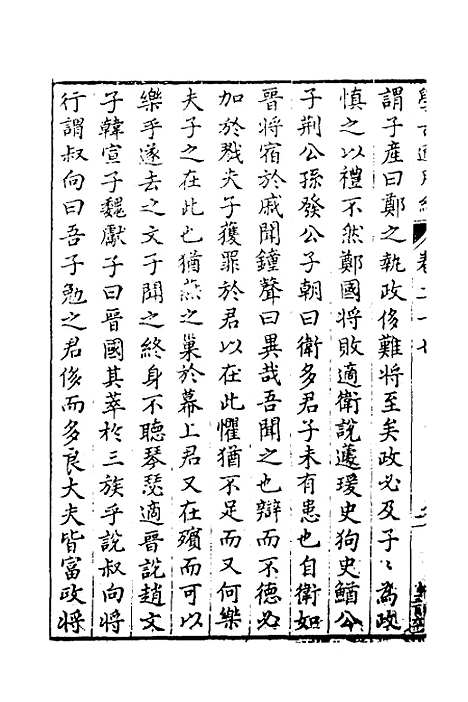 謂子產曰鄭之執政侈難將至矣政必及子〻為政
慎之以禮不然鄭國將敗適衛說蘧瑗史狗史鰌公
子荆公孫發公子朝曰衛多君子未有患也自衛如
晉將宿於戚聞鐘聲曰異哉吾聞之也辯而不德必
加於戮夫子獲罪於君以在此懼猶不足而又何樂
夫子之在此也猶燕之巢於幕上君又在殯而可以
樂乎遂去之文子聞之終身不聽琴瑟適晉說趙文
子韓宣子魏獻子曰晉國其萃於三族乎說叔向將
行謂叔向曰吾子勉之君侈而多良大夫皆富政將